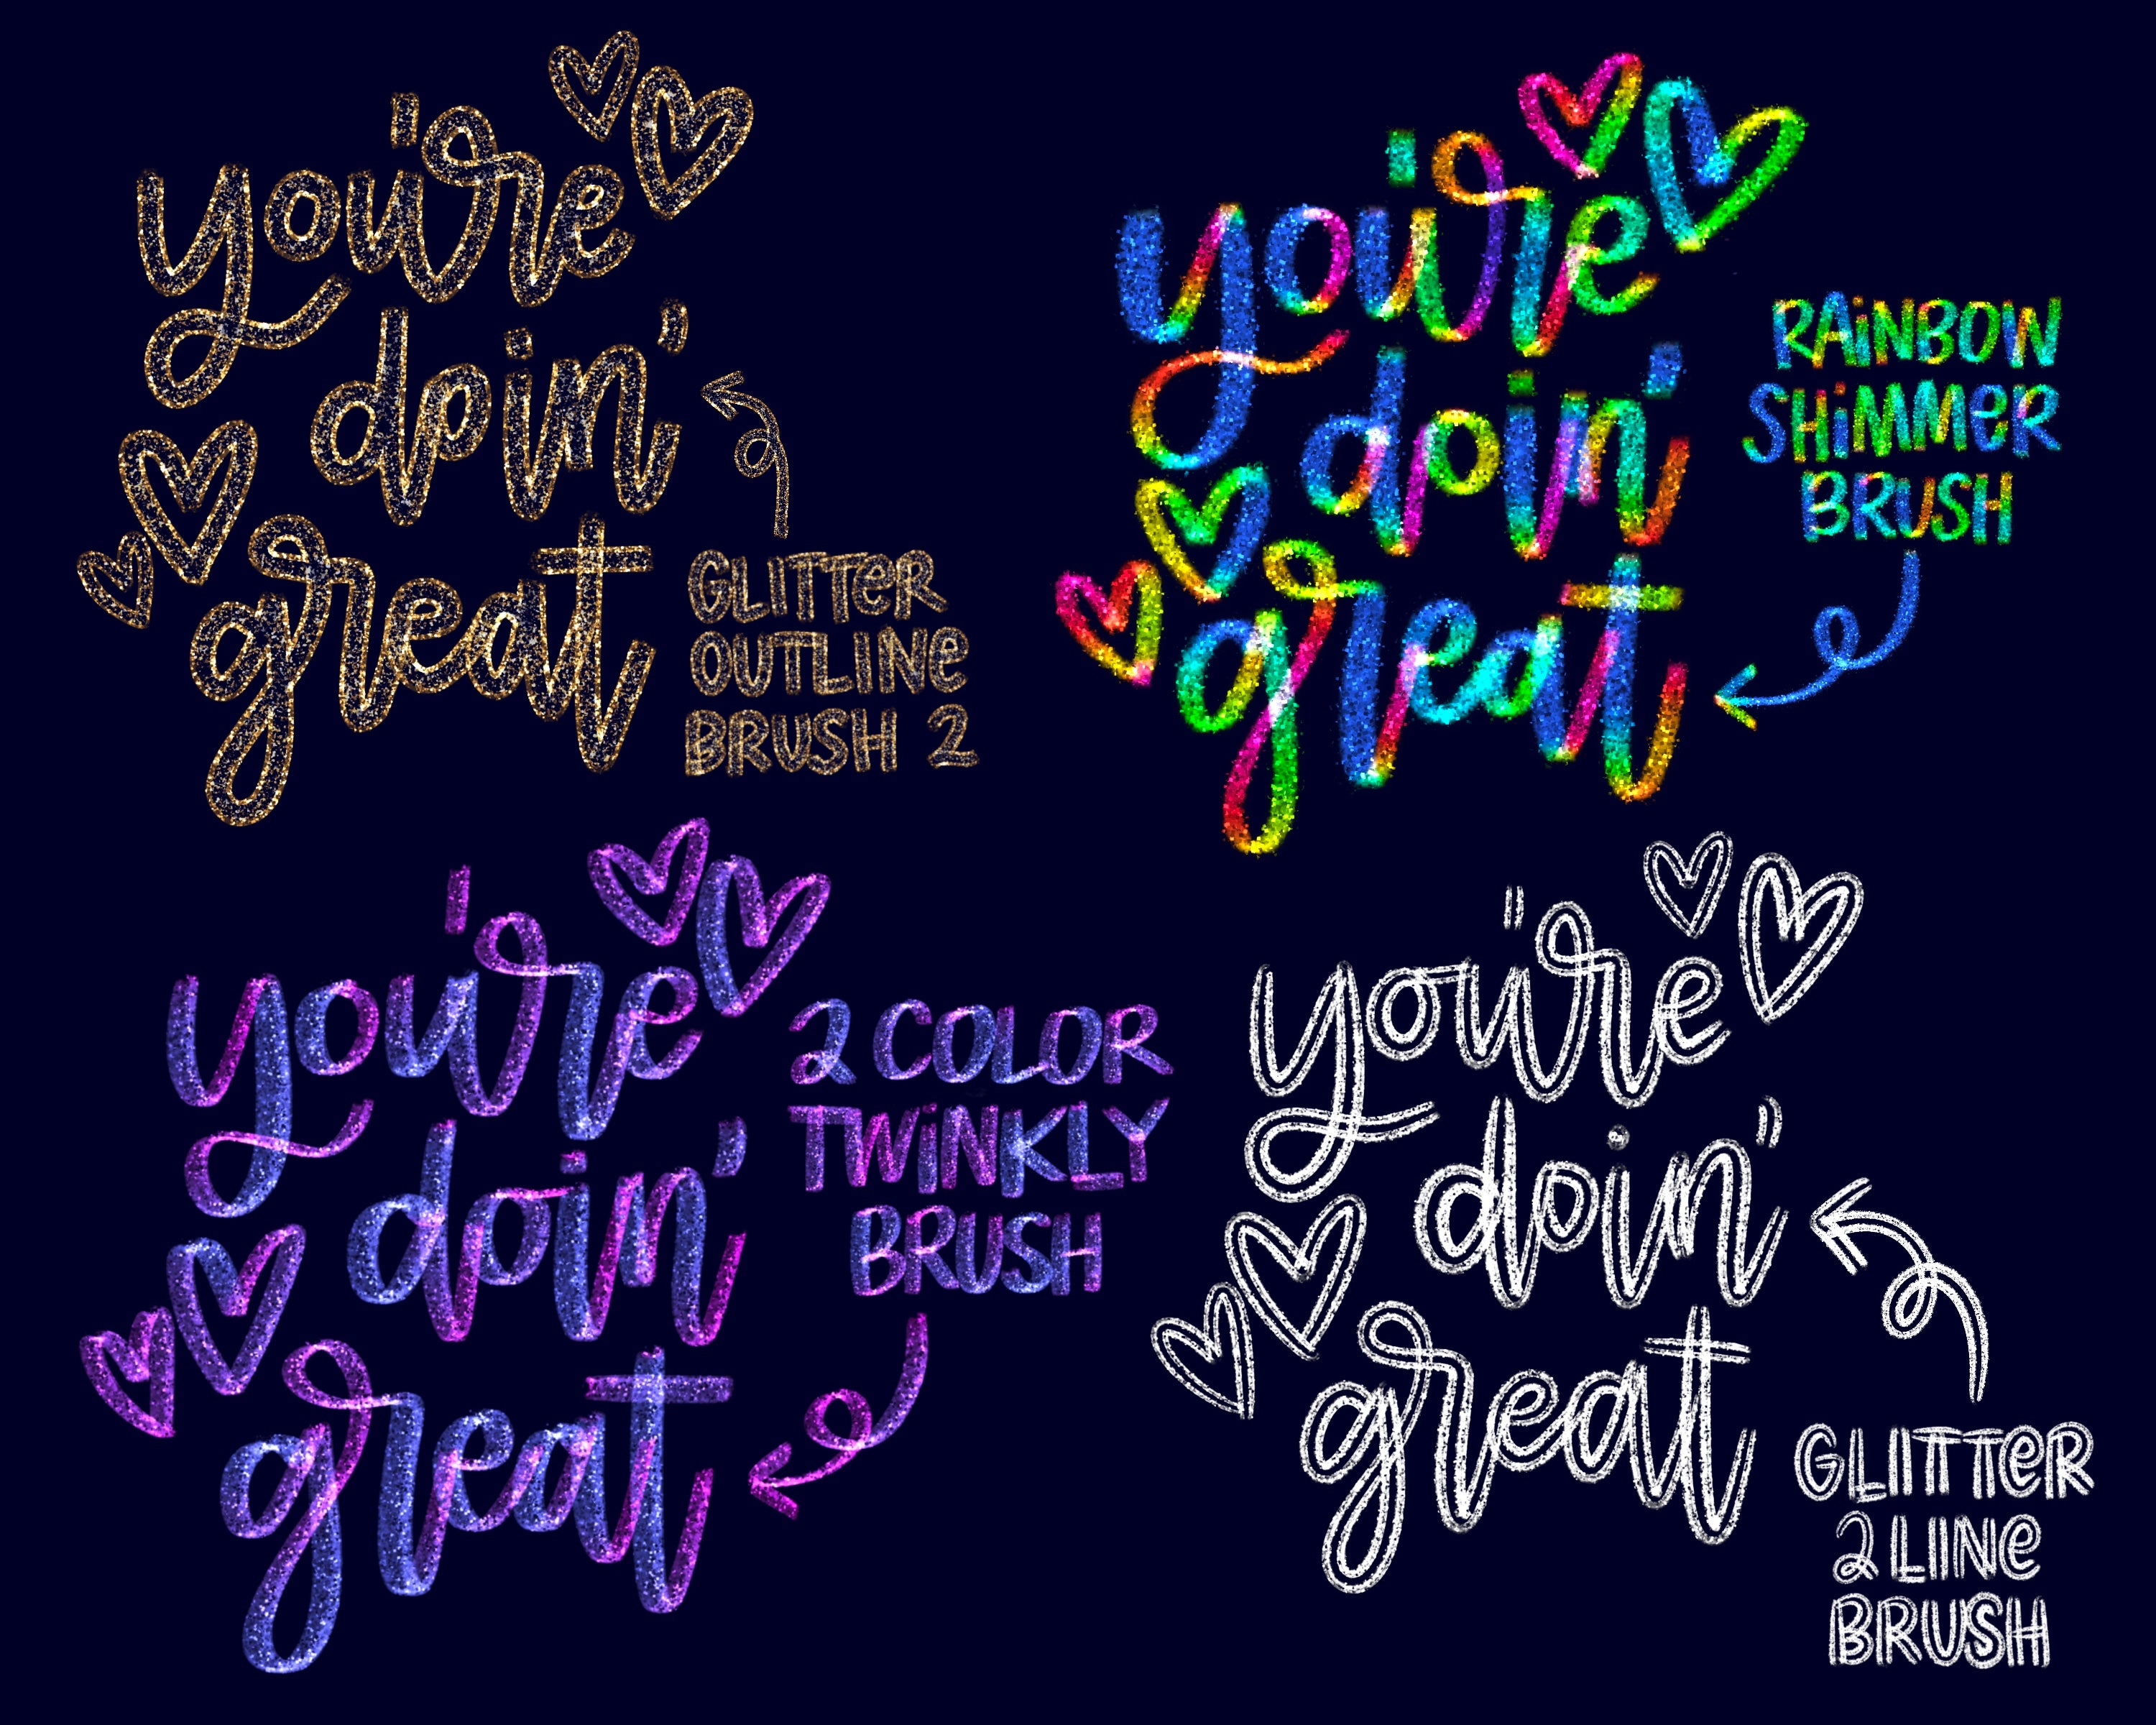 you're
doin'
great
GLITTER
OUTLINE
BRUSH 2
you're
doin'
great
RAiNBOW
SHiMMeR
BRUSH
you're
doin'
great
2 COLOR
TWiNKLY
BRUSH
you're
doin'
great
GLITTeR
2 LINe
BRUSH